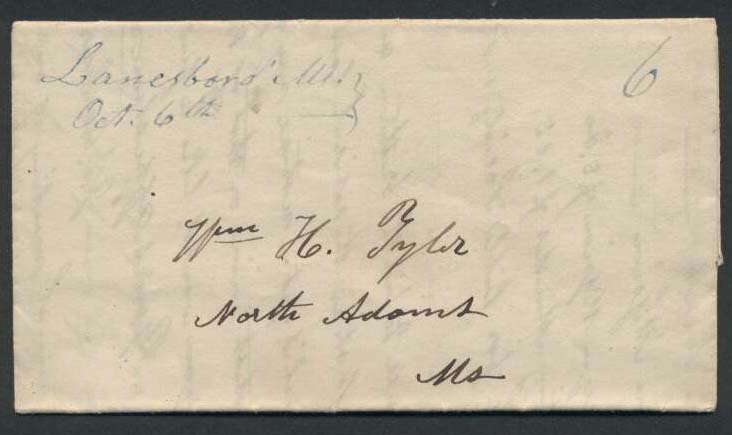 Lanesboro' Ms. }
Oct. 6th
6
Wm H. Tyler
North Adams
Ms